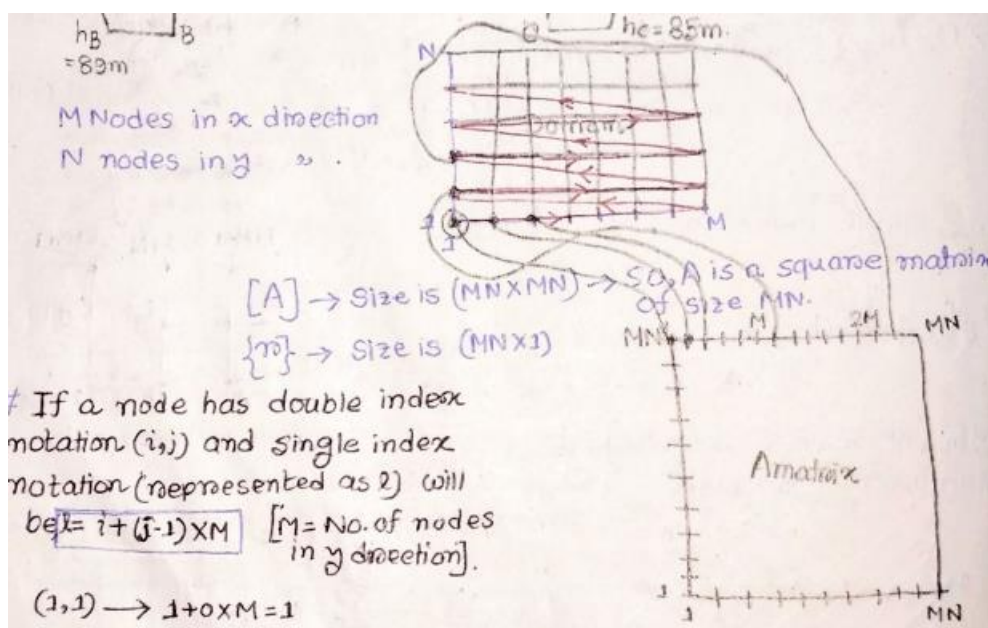 hB
=89m
B
hc=85m.
N
M Nodes in x direction
N nodes in y " .
Domain
1
1
M
[A] → Size is (MNXMN) → SO, A is a square matrix
of size MN.
{r} → Size is (MNX1)
MN
M
2M
MN
# If a node has double index
notation (i,j) and single index
notation (represented as l) will
be l= i+(j-1)XM [M= No. of nodes
in y direction].
A matrix
(1,1) → 1+0XM=1
1
1
MN